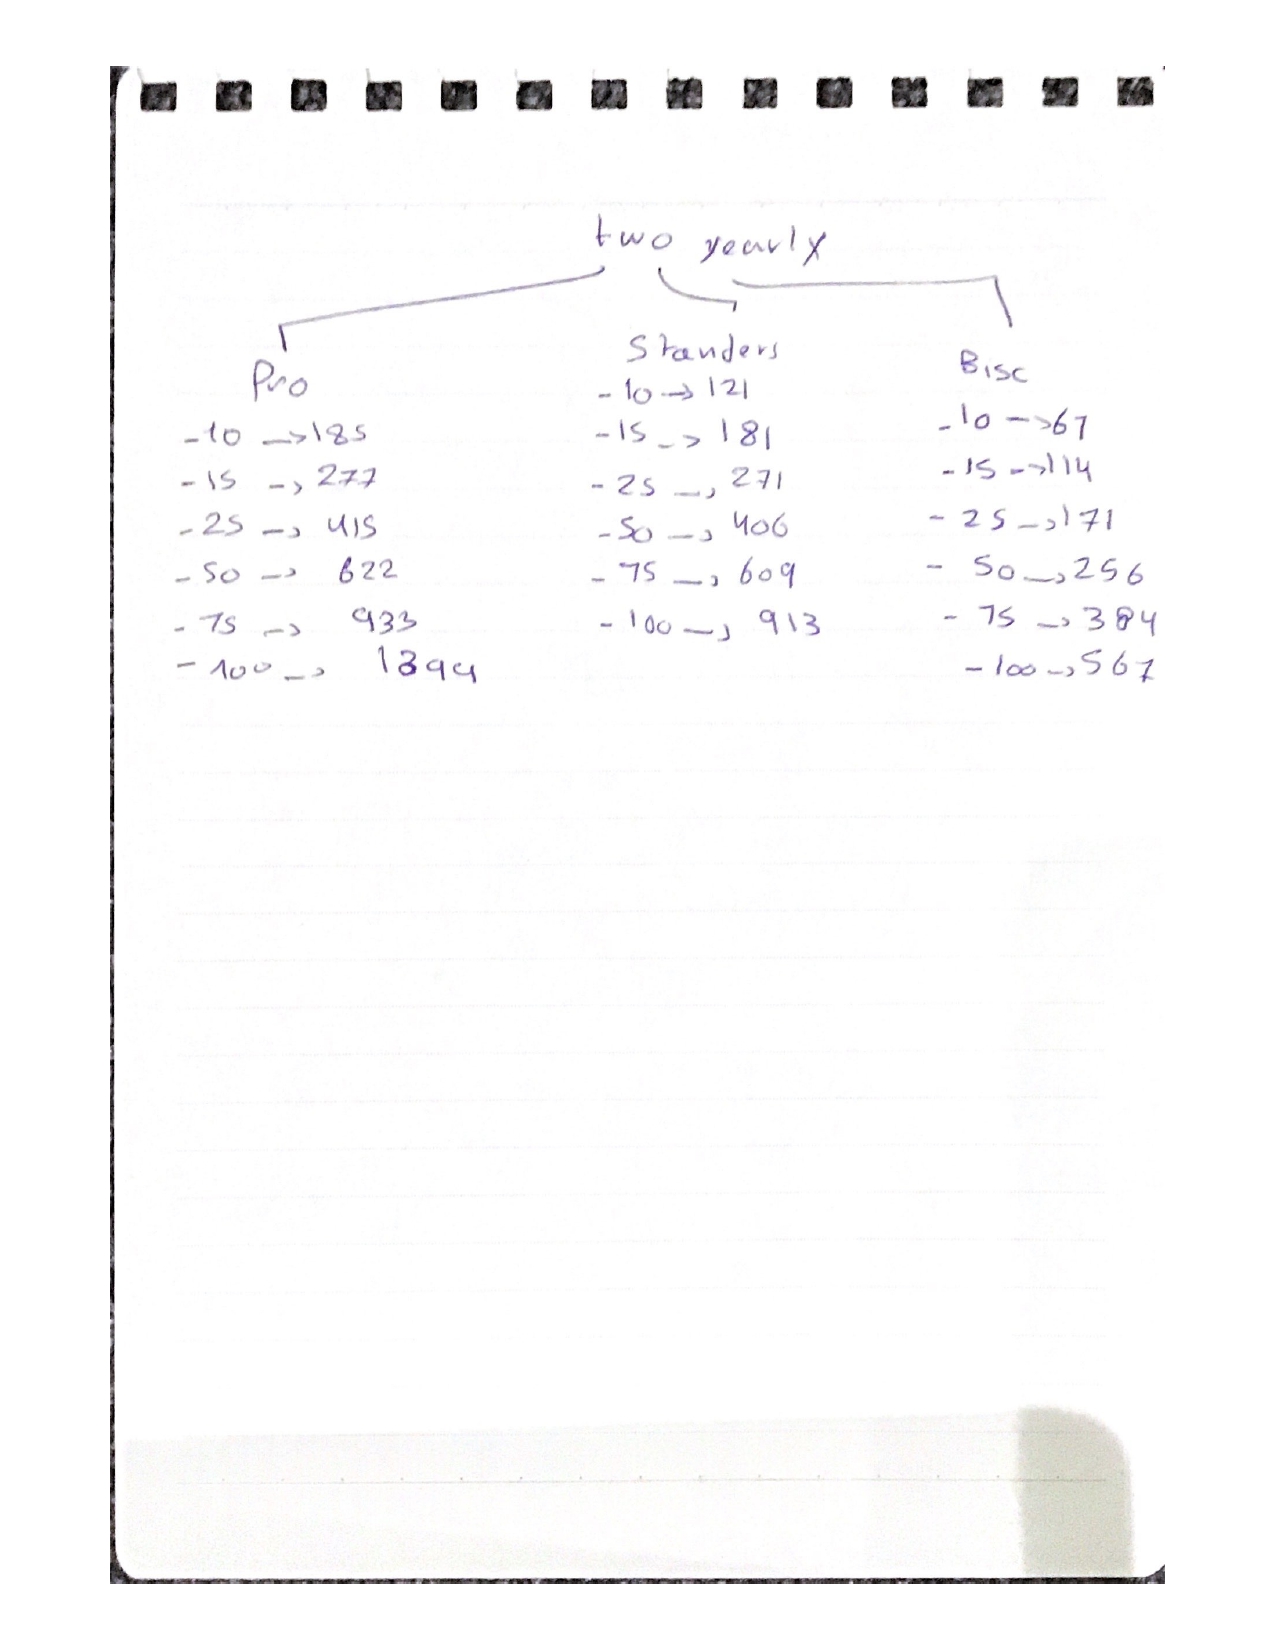 two yearly
Pro
-10 -> 185
-15 -> 277
-25 -> 415
-50 -> 622
-75 -> 933
-100 -> 1399
Standers
-10 -> 121
-15 -> 181
-25 -> 271
-50 -> 406
-75 -> 609
-100 -> 913
Bisc
-10 -> 67
-15 -> 114
-25 -> 171
-50 -> 256
-75 -> 384
-100 -> 567